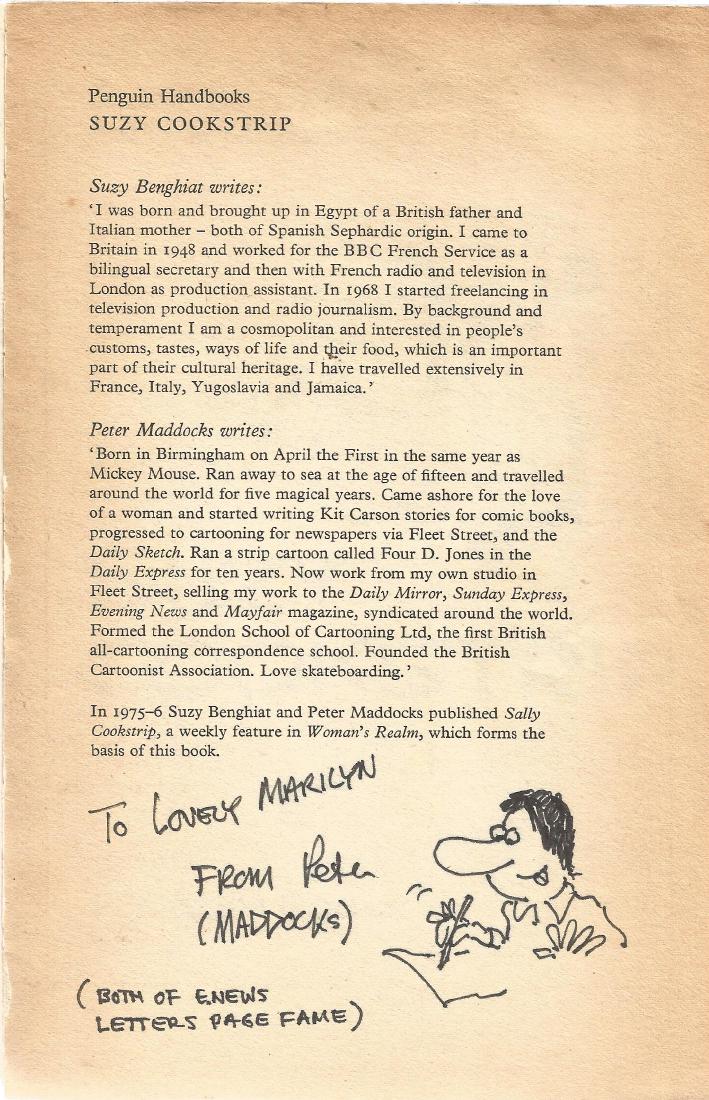 Penguin Handbooks
SUZY COOKSTRIP
Suzy Benghiat writes:
‘I was born and brought up in Egypt of a British father and
Italian mother – both of Spanish Sephardic origin. I came to
Britain in 1948 and worked for the BBC French Service as a
bilingual secretary and then with French radio and television in
London as production assistant. In 1968 I started freelancing in
television production and radio journalism. By background and
temperament I am a cosmopolitan and interested in people’s
customs, tastes, ways of life and their food, which is an important
part of their cultural heritage. I have travelled extensively in
France, Italy, Yugoslavia and Jamaica.’
Peter Maddocks writes:
‘Born in Birmingham on April the First in the same year as
Mickey Mouse. Ran away to sea at the age of fifteen and travelled
around the world for five magical years. Came ashore for the love
of a woman and started writing Kit Carson stories for comic books,
progressed to cartooning for newspapers via Fleet Street, and the
Daily Sketch. Ran a strip cartoon called Four D. Jones in the
Daily Express for ten years. Now work from my own studio in
Fleet Street, selling my work to the Daily Mirror, Sunday Express,
Evening News and Mayfair magazine, syndicated around the world.
Formed the London School of Cartooning Ltd, the first British
all-cartooning correspondence school. Founded the British
Cartoonist Association. Love skateboarding.’
In 1975–6 Suzy Benghiat and Peter Maddocks published Sally
Cookstrip, a weekly feature in Woman’s Realm, which forms the
basis of this book.
To LOVELY MARILYN
FROM Peter
(MADDOCKS)
(BOTH OF E.NEWS
LETTERS PAGE FAME)